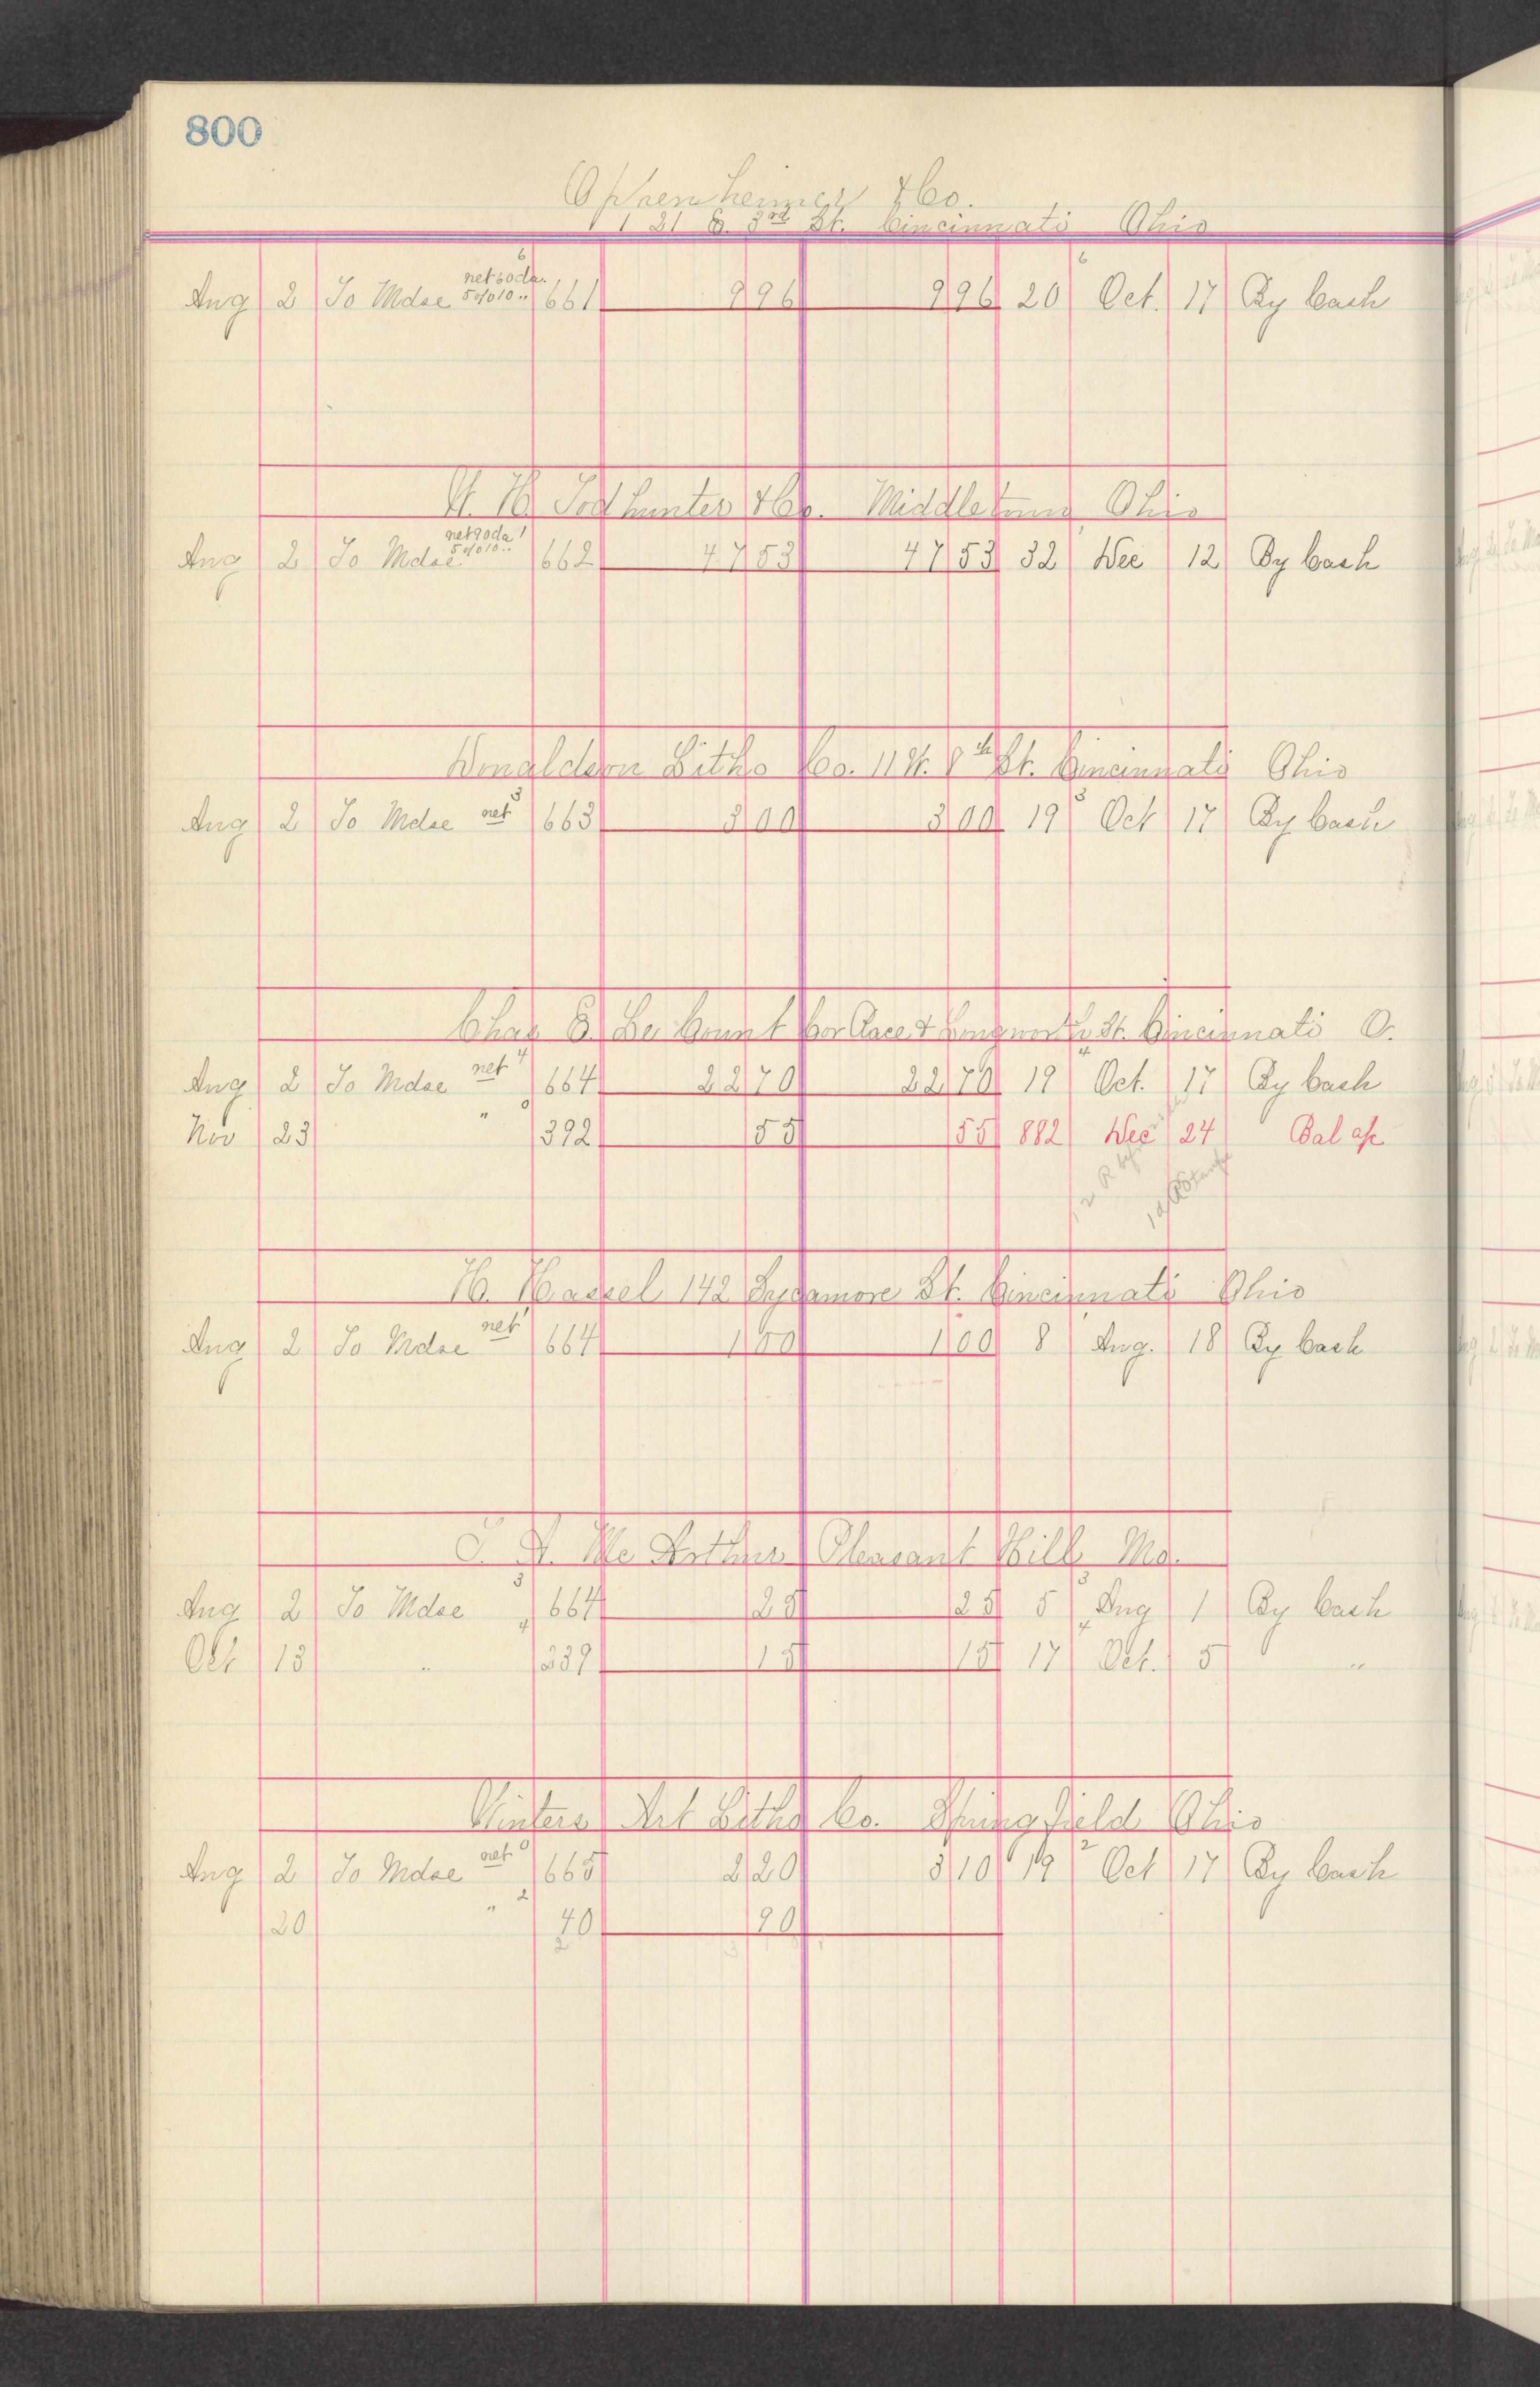 800
Oppenheimer & Co.
121 E. 3rd St. Cincinnati Ohio
6 6
net 60 da.
Aug 2 To Mdse 5% 10 " 661 9 96 9 96 20 Oct. 17 By Cash
Todhunter & Co. Middletown Ohio
net 90 da 1
Aug 2 To Mdse 5% 10 " 662 47 53 47 53 32 Dec 12 By Cash
Donaldson Litho Co. 11 W. 8th St. Cincinnati Ohio
3 3
Aug 2 To Mdse net 663 3 00 3 00 19 Oct 17 By Cash
Chas E. Le Count Cor Race & Longworth St. Cincinnati O.
4 4
Aug 2 To Mdse net 664 22 70 22 70 19 Oct. 17 By Cash
Nov 23 " 9 392 55 55 882 Dec 24 Bal a/c
H. Hassel 142 Sycamore St. Cincinnati Ohio
Aug 2 To Mdse net 1 664 1 00 1 00 8 Aug. 18 By Cash
Mc Arthur Pleasant Hill Mo.
3 3
Aug 2 To Mdse 664 25 25 5 Aug 1 By Cash
4 4
Oct 13 " 239 15 15 17 Oct. 5 "
Winters Art Litho Co. Springfield Ohio
Aug 2 To Mdse net 0 665 2 20 3 10 19 2 Oct 17 By Cash
20 " 2 40 90
2